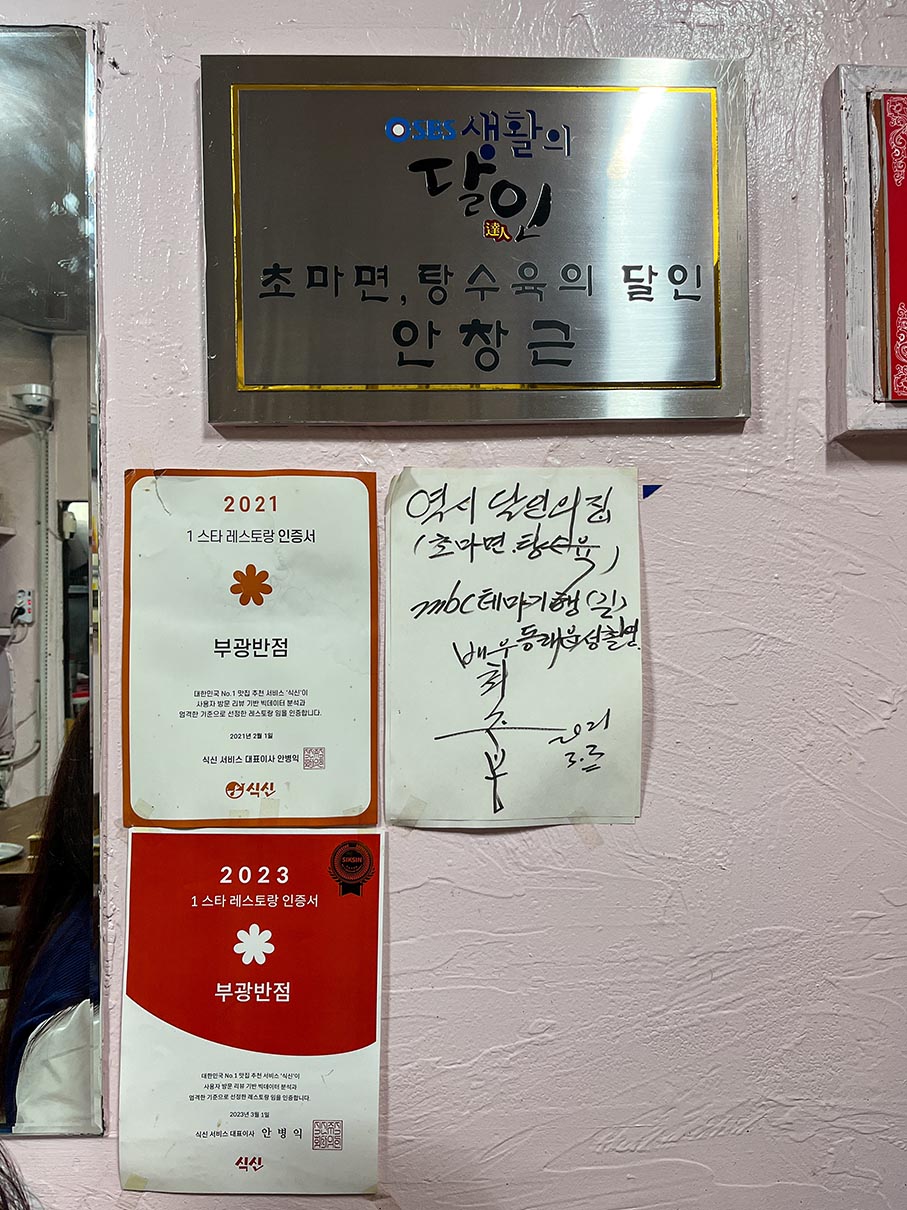 SBS 생활의
달인
達人
초마면, 탕수육의 달인
안창근
2021
1 스타 레스토랑 인증서
부광반점
대한민국 No.1 맛집 추천 서비스 '식신'이
사용자 방문 리뷰 기반 빅데이터 분석과
엄격한 기준으로 선정한 레스토랑 임을 인증합니다.
2021년 2월 1일
식신 서비스 대표이사 안병익
식신
역시 달인의 집
(초마면.탕수육)
mbc 테마기행(길)
배우
최
주
봉
2021
SIKSIN
2023
1 스타 레스토랑 인증서
부광반점
대한민국 No.1 맛집 추천 서비스 '식신'이
사용자 방문 리뷰 기반 빅데이터 분석과
엄격한 기준으로 선정한 레스토랑 임을 인증합니다.
2023년 3월 1일
식신 서비스 대표이사 안 병 익
식신